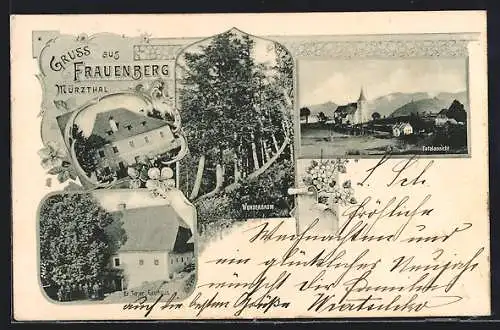 GRUSS AUS
FRAUENBERG
MÜRZTHAL
WUNDERBAUM
Totalansicht
L. Sch.
fröhliche
Weihnachten und
ein glückliches Neujahr
wünscht der Familie
auch die besten Grüße